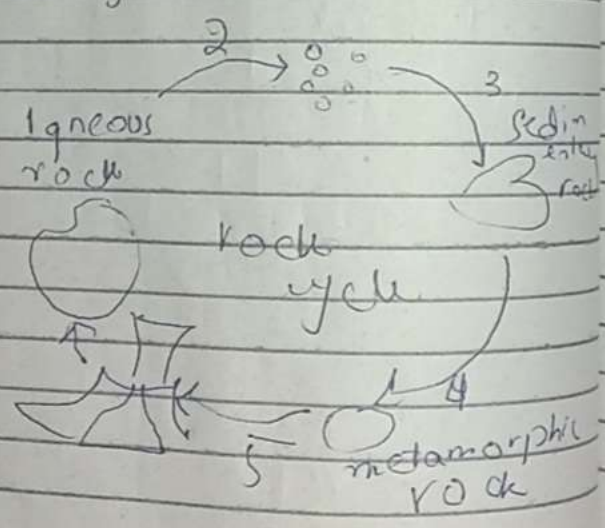 2
3
Igneous
rock
Sedim
entry
rock
rock
cycle
4
5
metamorphic
rock